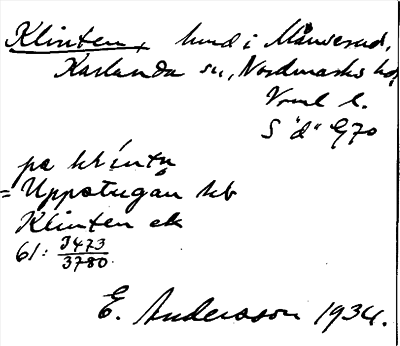 Klinten, hmd i Månserud,
Karlanda sn, Nordmarks hd,
Vrml l.
S "d" G70
på klintn
= Uppstugan kb
Klinten ek
61: J473
3780
E. Andersson 1934.